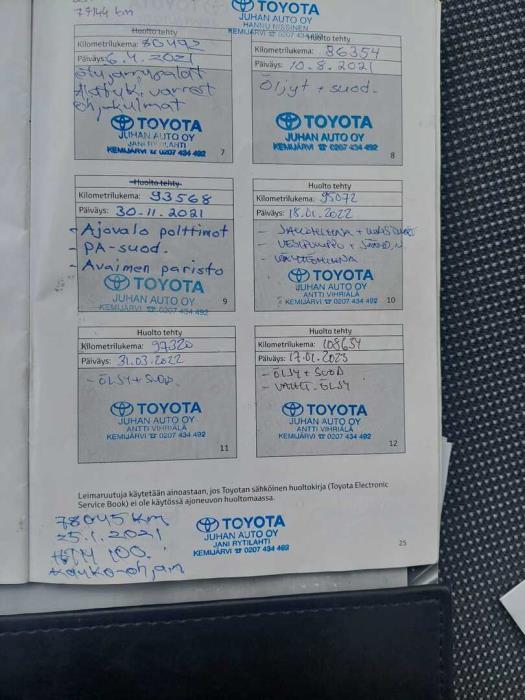 79144 km
TOYOTA
JUHAN AUTO OY
HANNU NISSINEN
KEMIJÄRVI ☎ 0207 434 492
Huolto tehty
Kilometrilukema: 80492
Päiväys: 6.4.2021
öljy, jarrupalat
ohjkulmat
TOYOTA
JUHAN AUTO OY
JANI RYTILAHTI
KEMIJÄRVI ☎ 0207 434 492
7
Huolto tehty
Kilometrilukema: 86354
Päiväys: 10.8.2021
Öljyt + suod.
TOYOTA
JUHAN AUTO OY
KEMIJÄRVI ☎ 0207 434 492
8
Huolto tehty
Kilometrilukema: 93568
Päiväys: 30.11.2021
- Ajovalo polttimot
- PA-suod.
- Avaimen paristo
TOYOTA
JUHAN AUTO OY
KEMIJÄRVI ☎ 0207 434 492
9
Huolto tehty
Kilometrilukema: 95072
Päiväys: 18.01.2022
- VESIPUMPPU +
TOYOTA
JUHAN AUTO OY
ANTTI VIHRIÄLÄ
KEMIJÄRVI ☎ 0207 434 492
10
Huolto tehty
Kilometrilukema: 97320
Päiväys: 31.03.2022
- ÖLJY + SUOD.
TOYOTA
JUHAN AUTO OY
ANTTI VIHRIÄLÄ
KEMIJÄRVI ☎ 0207 434 492
11
Huolto tehty
Kilometrilukema: 108654
Päiväys: 17.01.2023
- ÖLJY + SUOD
- VAIHT. ÖLJY
TOYOTA
JUHAN AUTO OY
ANTTI VIHRIÄLÄ
KEMIJÄRVI ☎ 0207 434 492
12
Leimaruutuja käytetään ainoastaan, jos Toyotan sähköinen huoltokirja (Toyota Electronic
Service Book) ei ole käytössä ajoneuvon huoltomaassa.
78045 km
25.1.2021
HTM 100.
kauko-ohjain
TOYOTA
JUHAN AUTO OY
JANI RYTILAHTI
KEMIJÄRVI ☎ 0207 434 492
25